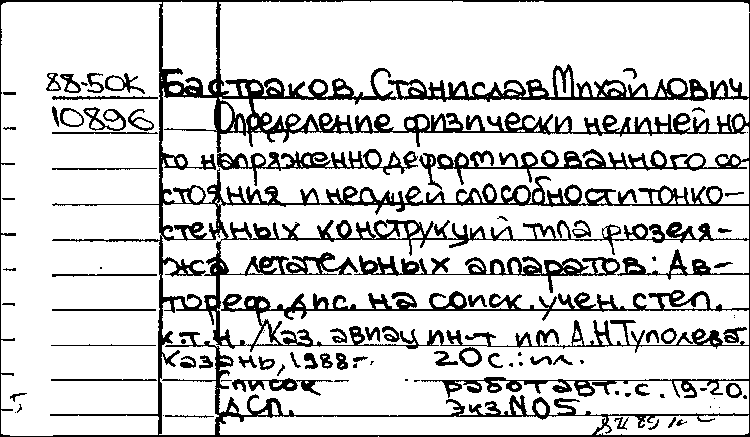 88-50К Бастраков, Станислав Михайлович
10896 Определение физически нелинейно-
го напряженнодеформированного со-
стояния и несущей способности тонко-
стенных конструкций типа фюзеля-
жа летательных аппаратов: Ав-
тореф. дис. на соиск. учен. степ.
к.т.н. /Каз. авиац ин-т им А.Н.Туполева.
Казань, 1988г. 20с.: ил.
Список работ авт.: с. 19-20.
ДСП. Экз.N05.